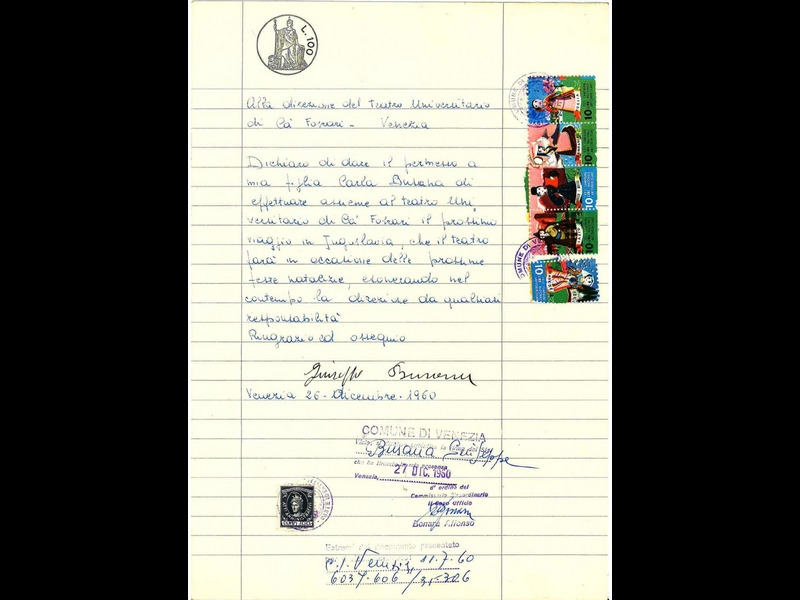 L. 100
Alla direzione del Teatro Universitario
di Ca' Foscari - Venezia
Dichiaro di dare il permesso a
mia figlia Carla Busana di
effettuare assieme al teatro Uni
versitario di Ca' Foscari il prossimo
viaggio in Jugoslavia, che il teatro
farà in occasione delle prossime
feste natalizie, esonerando nel
contempo la direzione da qualsiasi
responsabilità
Ringrazio ed ossequio
Giuseppe Busana
Venezia 26-Dicembre-1960
COMUNE DI VENEZIA
Busana Giuseppe
Venezia, 27 DIC. 1960
d'ordine del
Commissario Straordinario
Il Capo Ufficio
Bonafè Alfonso
Estremi del documento presentato
p.i. Venezia 11.7.60
6037.606 /31-326